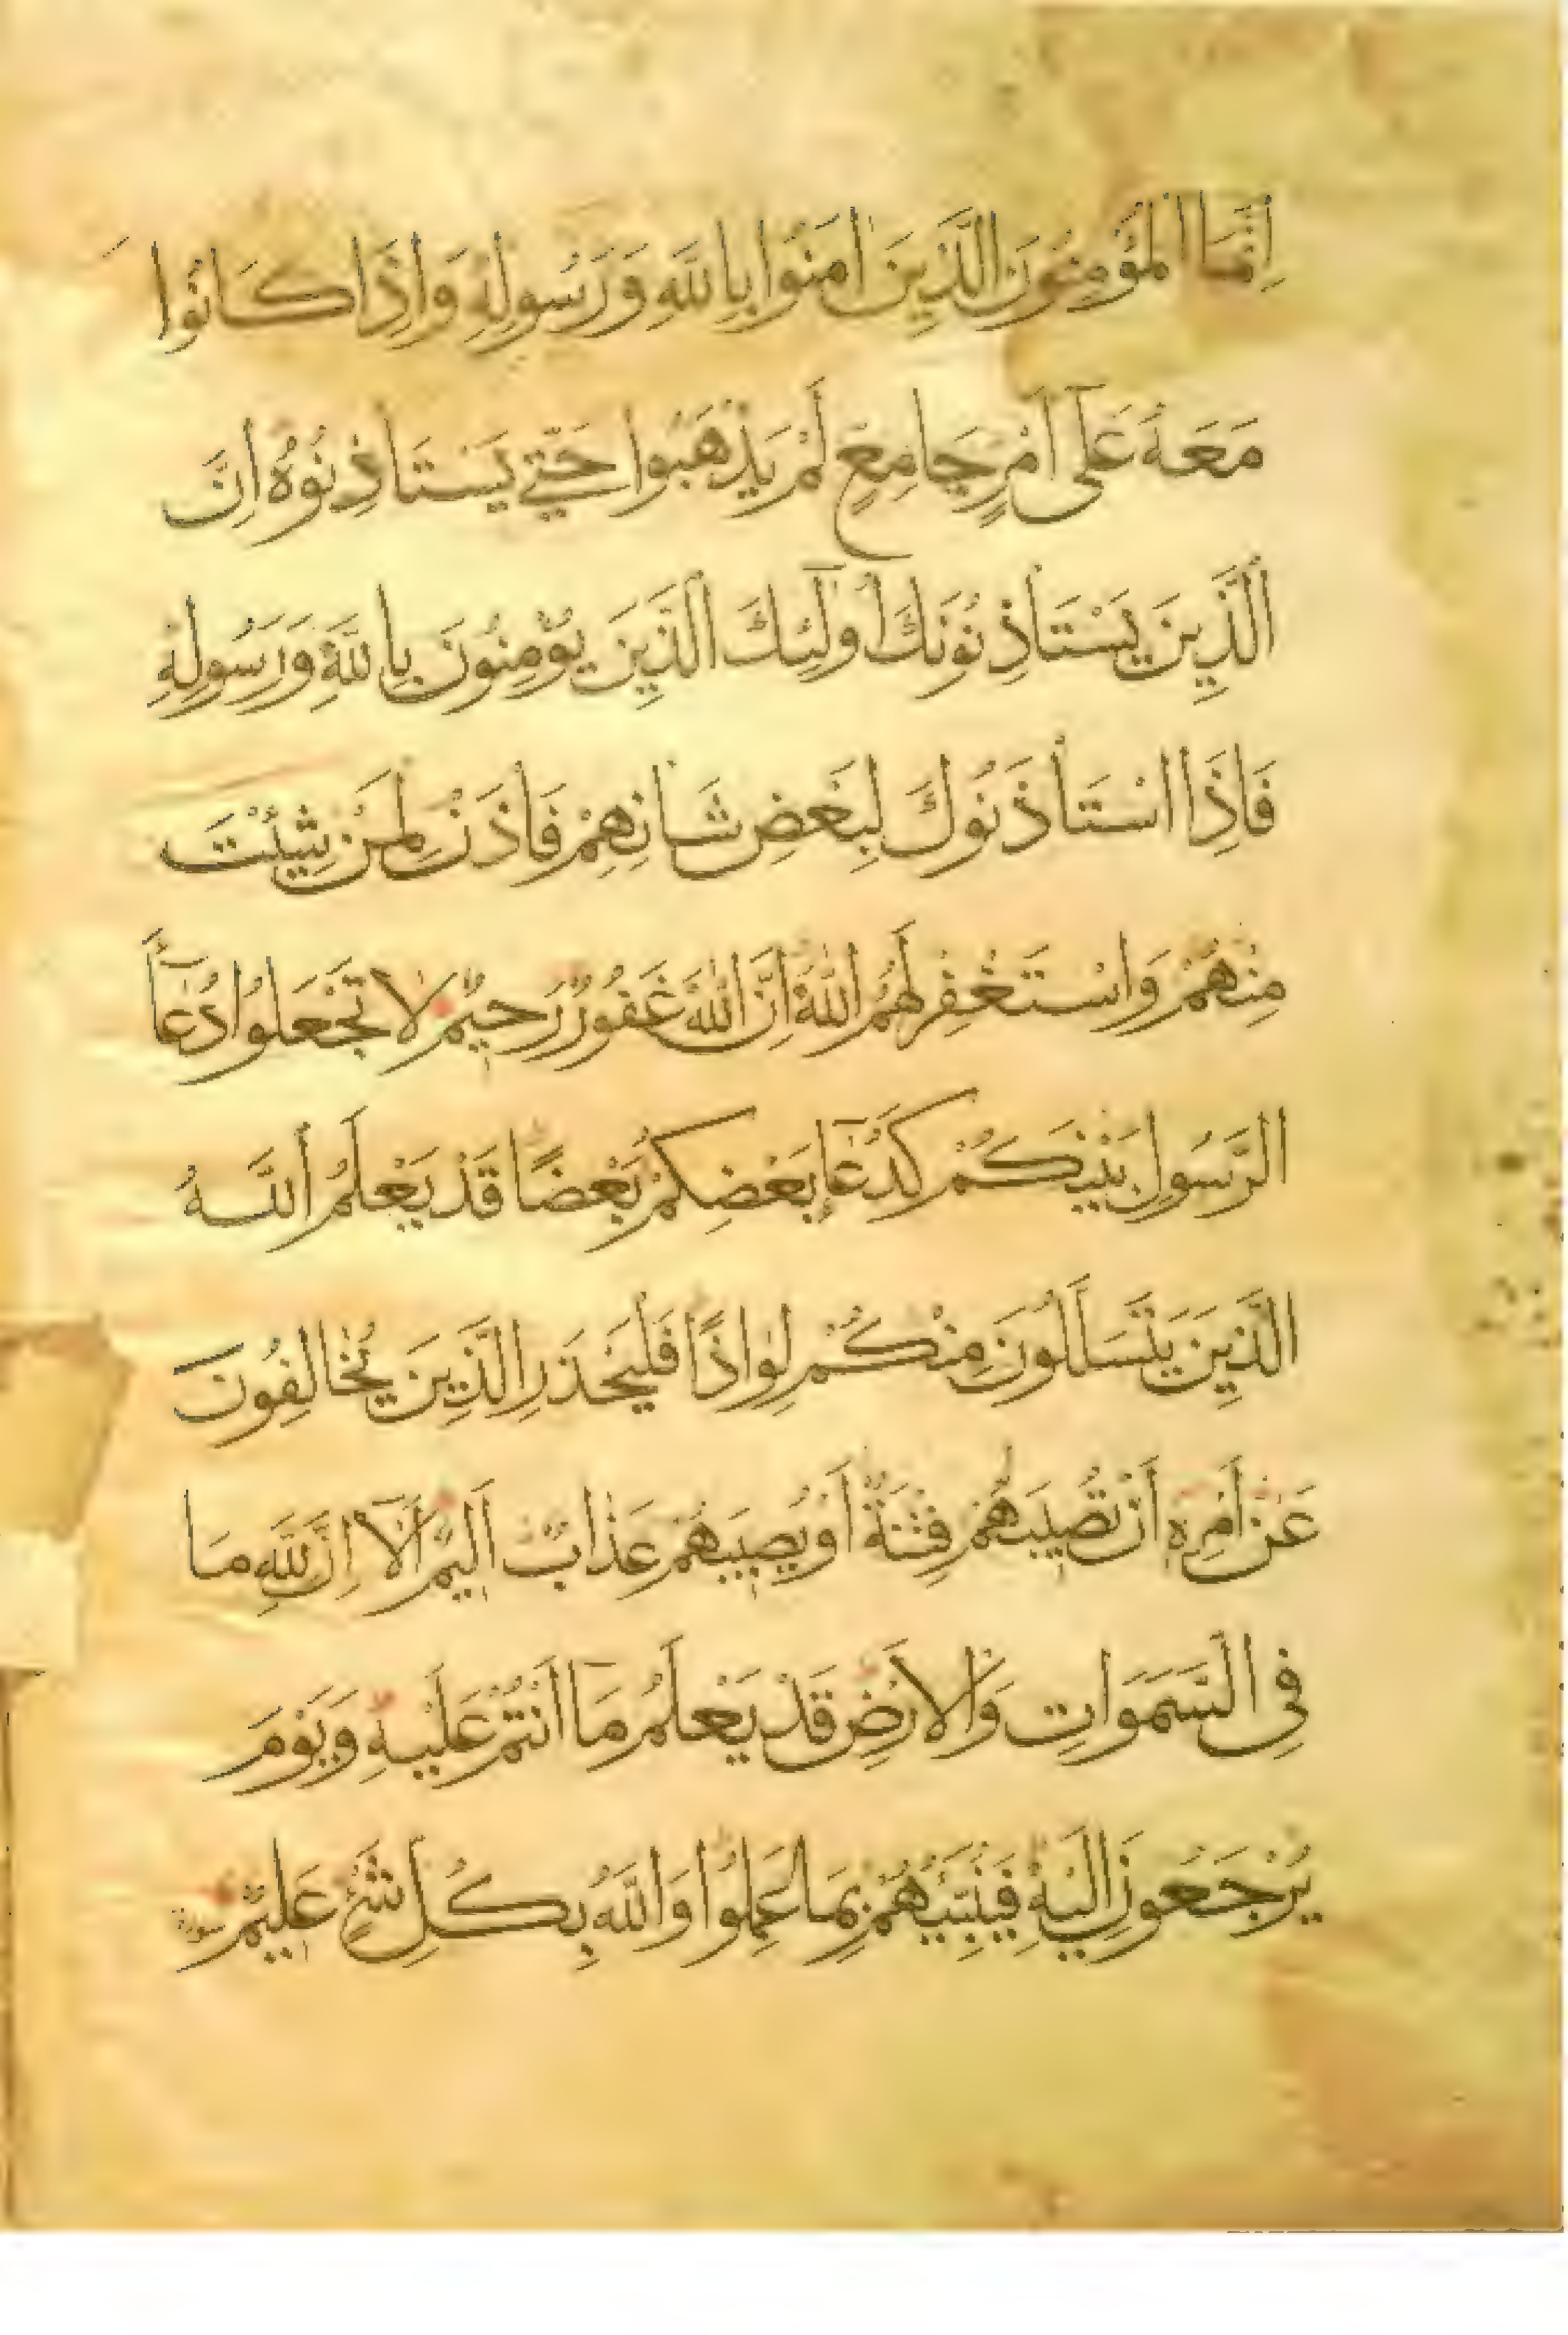 اِنَّمَا الْمُؤْمِنُونَ الَّذِينَ اٰمَنُوا بِاللّٰهِ وَرَسُولِهِ وَاِذَا كَانُوا
مَعَهُ عَلٰٓى اَمْرٍ جَامِعٍ لَمْ يَذْهَبُوا حَتّٰى يَسْتَاْذِنُوهُ اِنَّ
الَّذِينَ يَسْتَاْذِنُونَكَ اُولٰٓئِكَ الَّذِينَ يُؤْمِنُونَ بِاللّٰهِ وَرَسُولِهِ
فَاِذَا اسْتَاْذَنُوكَ لِبَعْضِ شَاْنِهِمْ فَاْذَنْ لِمَنْ شِئْتَ
مِنْهُمْ وَاسْتَغْفِرْ لَهُمُ اللّٰهَ اِنَّ اللّٰهَ غَفُورٌ رَحِيمٌ لَا تَجْعَلُوا دُعَآءَ
الرَّسُولِ بَيْنَكُمْ كَدُعَآءِ بَعْضِكُمْ بَعْضًا قَدْ يَعْلَمُ اللّٰهُ
الَّذِينَ يَتَسَلَّلُونَ مِنْكُمْ لِوَاذًا فَلْيَحْذَرِ الَّذِينَ يُخَالِفُونَ
عَنْ اَمْرِهِ اَنْ تُصِيبَهُمْ فِتْنَةٌ اَوْ يُصِيبَهُمْ عَذَابٌ اَلِيمٌ اَلَآ اِنَّ لِلّٰهِ مَا
فِي السَّمٰوَاتِ وَالْاَرْضِ قَدْ يَعْلَمُ مَآ اَنْتُمْ عَلَيْهِ وَيَوْمَ
يُرْجَعُونَ اِلَيْهِ فَيُنَبِّئُهُمْ بِمَا عَمِلُوا وَاللّٰهُ بِكُلِّ شَيْءٍ عَلِيمٌ سورة